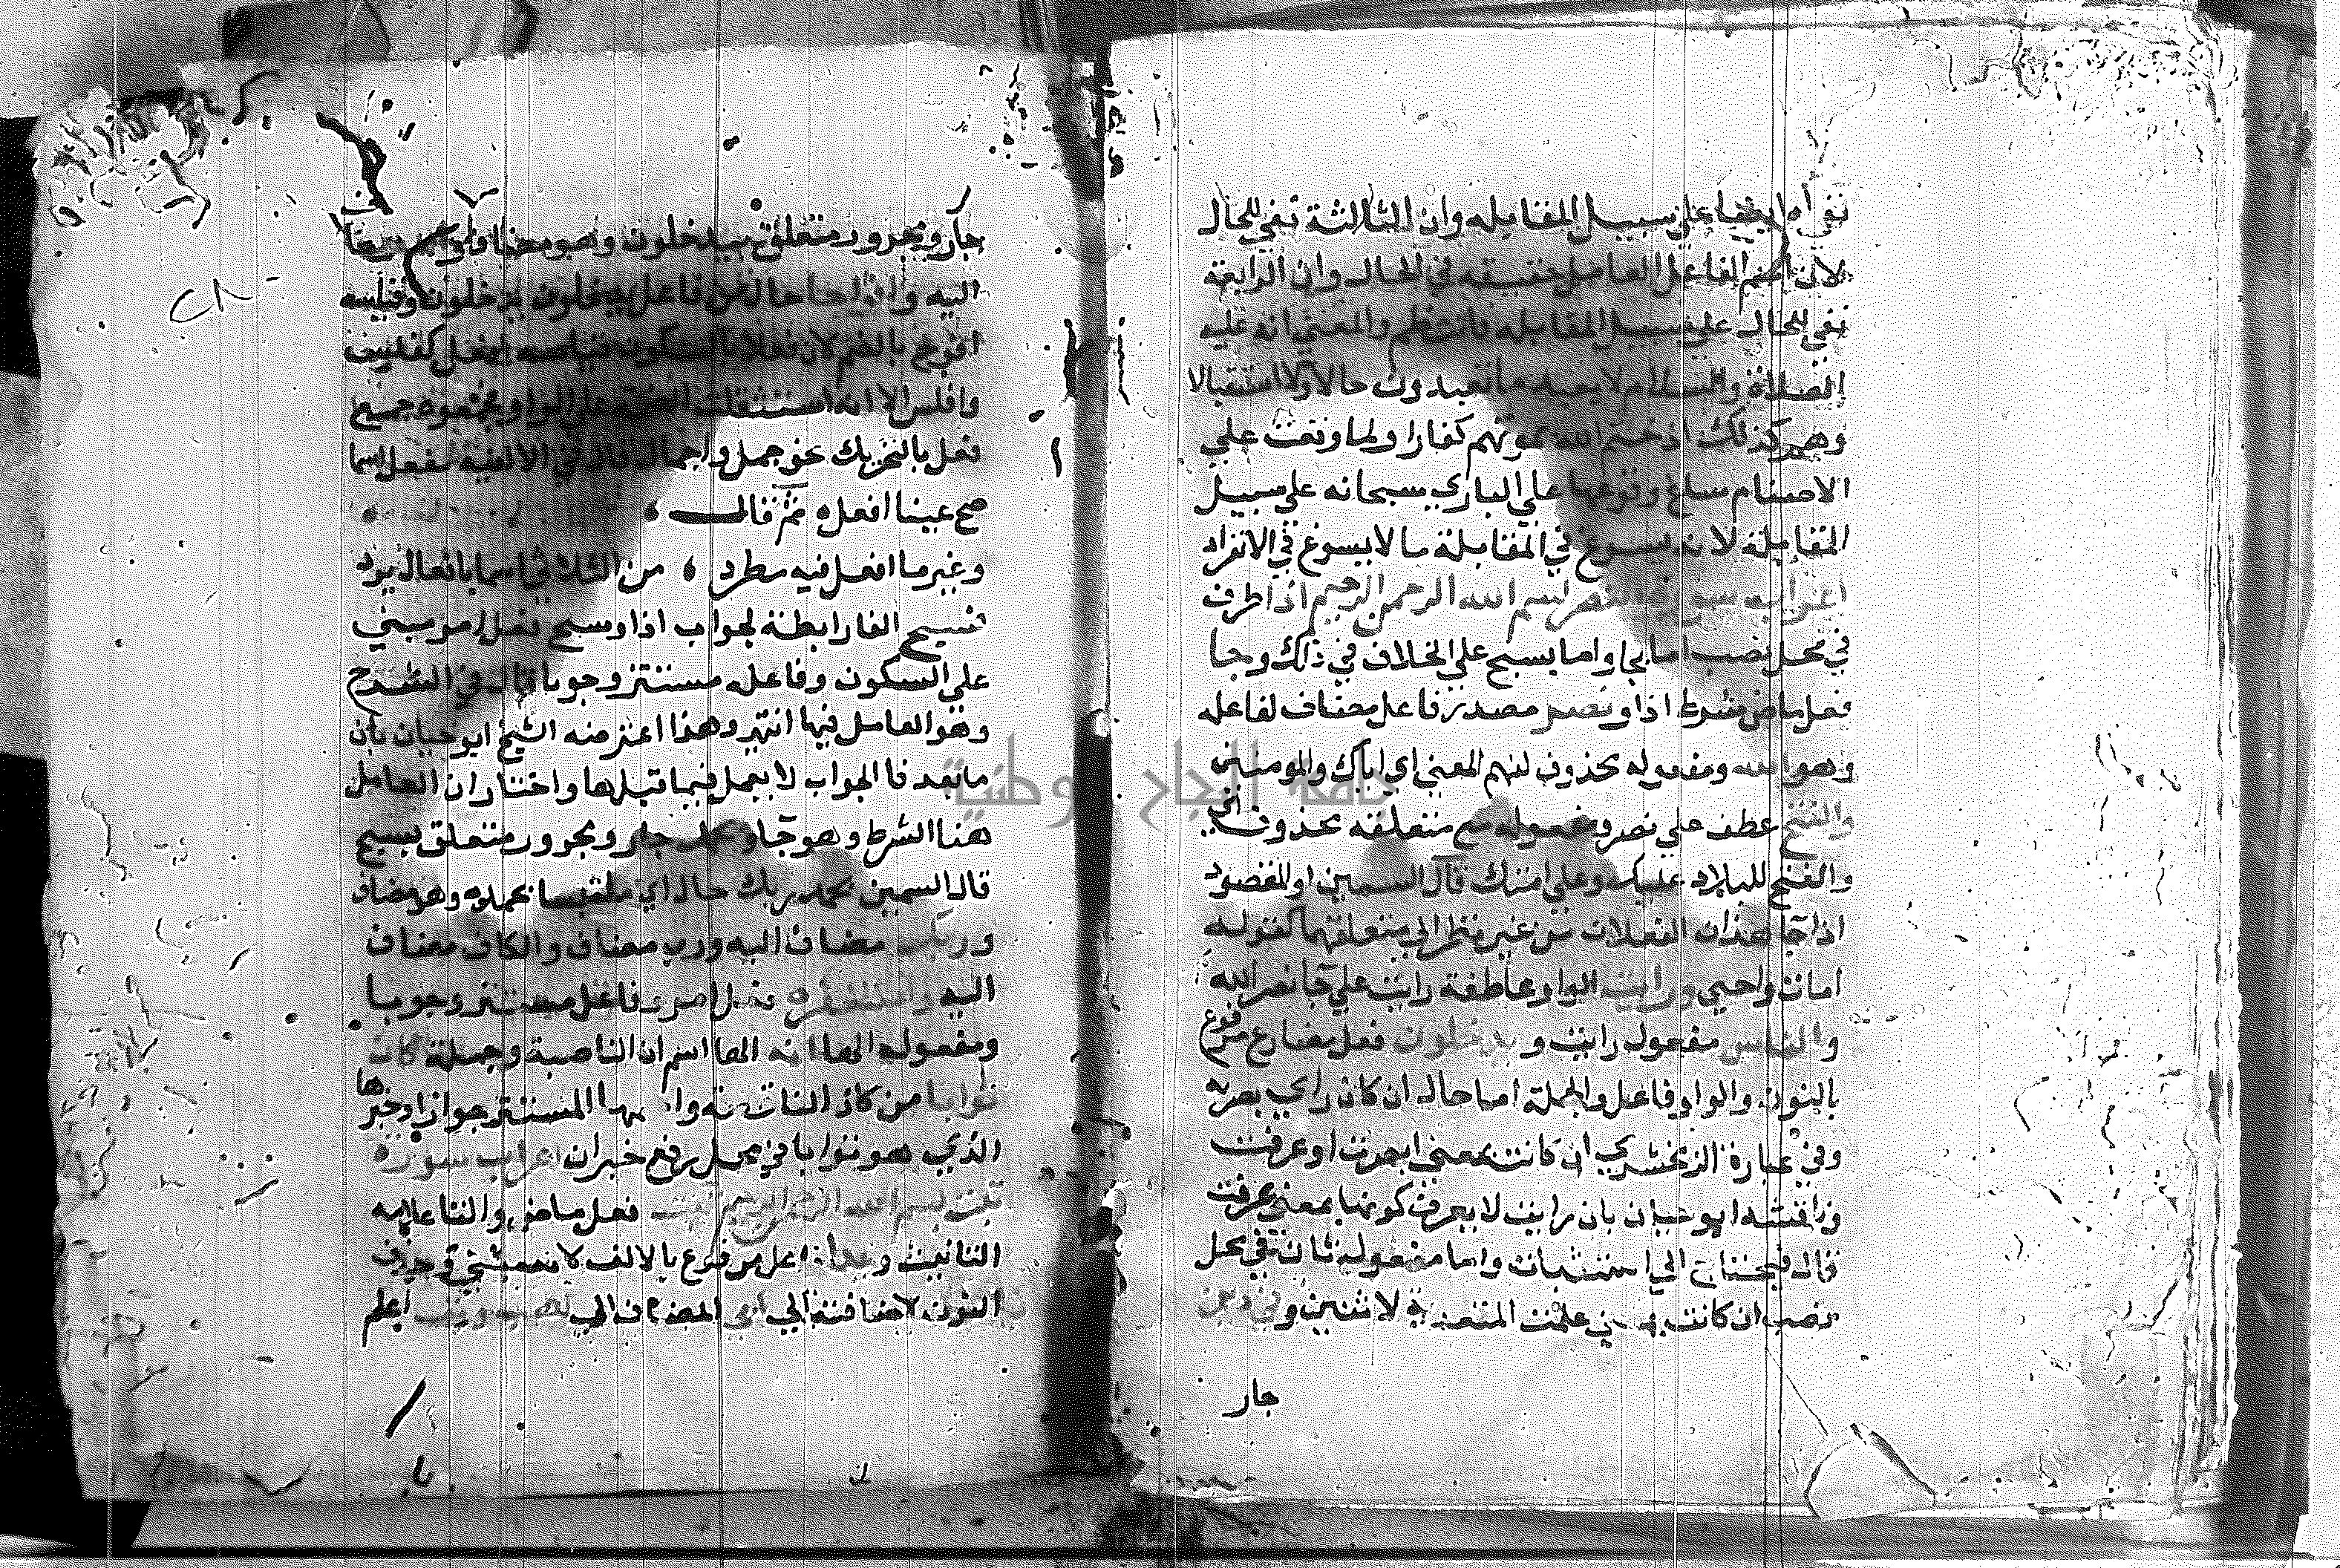 على سبيل المقابله وان الثالثة نفي للحال
لان اسم الفاعل العامل حقيقه في الحال وان الرابعة
نفي للحال على سبيل المقابله والمعني انه عليه
الصلاة والسلام لا يعبد ما تعبدون حالا ولا استقبالا
وهم كذلك اذ ختم الله بموتهم كفارا ولما وقعت علي
الاصنام ساغ وقوعها علي الباري سبحانه على سبيل
المقابلة لانه يسوغ في المقابلة ما لا يسوغ في الانفراد
اعراب سورة النصر بسم الله الرحمن الرحيم اذا ظرف
في محل نصب اما بجا واما بسبح على الخلاف في ذلك وجا
فعل ماض شرط اذا ونصر مصدر فاعل مضاف لفاعله
وهو الله ومفعوله محذوف لفهم المعني اي اياك والمومنين
والفتح عطف على نصر ومفعوله مع متعلقه محذوف اي
والفتح للبلاد عليك وعلى امتك قال السمين او المقصود
اذا جا هذان الفعلان من غير نظر الي متعلقهما كقوله
امات واحيي ورايت الواو عاطفة رايت علي جا نصر الله
والناس مفعول رايت ويدخلون فعل مضارع مرفوع
بالنون والواو فاعل والجملة اما حال ان كان راي بصريه
وفي عبارة الزمخشري ان كانت بمعني ابصرت او عرفت
وناقشه ابو حيان بان رايت لا يعرف كونها بمعني عرفت
قال فيحتاج الي استثبات واما مفعوله ثان في محل
نصب ان كانت بمعني علمت المتعدية لاثنين وفي دين
جار
جار ومجرور متعلق بيدخلون وهو مضاف
اليه وافواجا حال من فاعل يدخلون وقياسه
افوج بالضم لان فعلا بالسكون قياسه افعل كفليس
وافلس الا انه استثقلت الضمة على الواو جمع
فعل بالتحريك نحو جمل واجمال قال في الالفيه لفعل اسما
صح عينا افعل ثم قال
وغير ما افعل فيه مطرد من الثلاثي اسما بافعال يرد
فسبح الفا رابطة لجواب اذا وسبح فعل امر مبني
علي السكون وفاعله مستتر وجوبا قال في الشرح
وهو العامل فيها انتهي وهذا اعترضه الشيخ ابو حيان بان
ما بعد فا الجواب لا يعمل فيما قبلها واختار ان العامل
هنا الشرط وهو جا وبحمد جار ومجرور متعلق بسبح
قال السمين بحمد ربك حال اي ملتبسا بحمده وهو مضاف
وربك مضاف اليه ورب مضاف والكاف مضاف
اليه واستغفره فعل امر وفاعل مستتر وجوبا
ومفعوله الها انه الها اسم ان الناصبة وجملة كان
توابا من كان الناقصة واسمها المستتر جوازا وخبرها
الذي هو توابا في محل رفع خبر ان اعراب سورة
تبت بسم الله الرحمن الرحيم تبت فعل ماض والتا علامه
التانيث ويدا فاعل مرفوع بالالف لانه مثني وحذف
النون لاضافته الي ابي المضاف الي لهب وتب اعلم